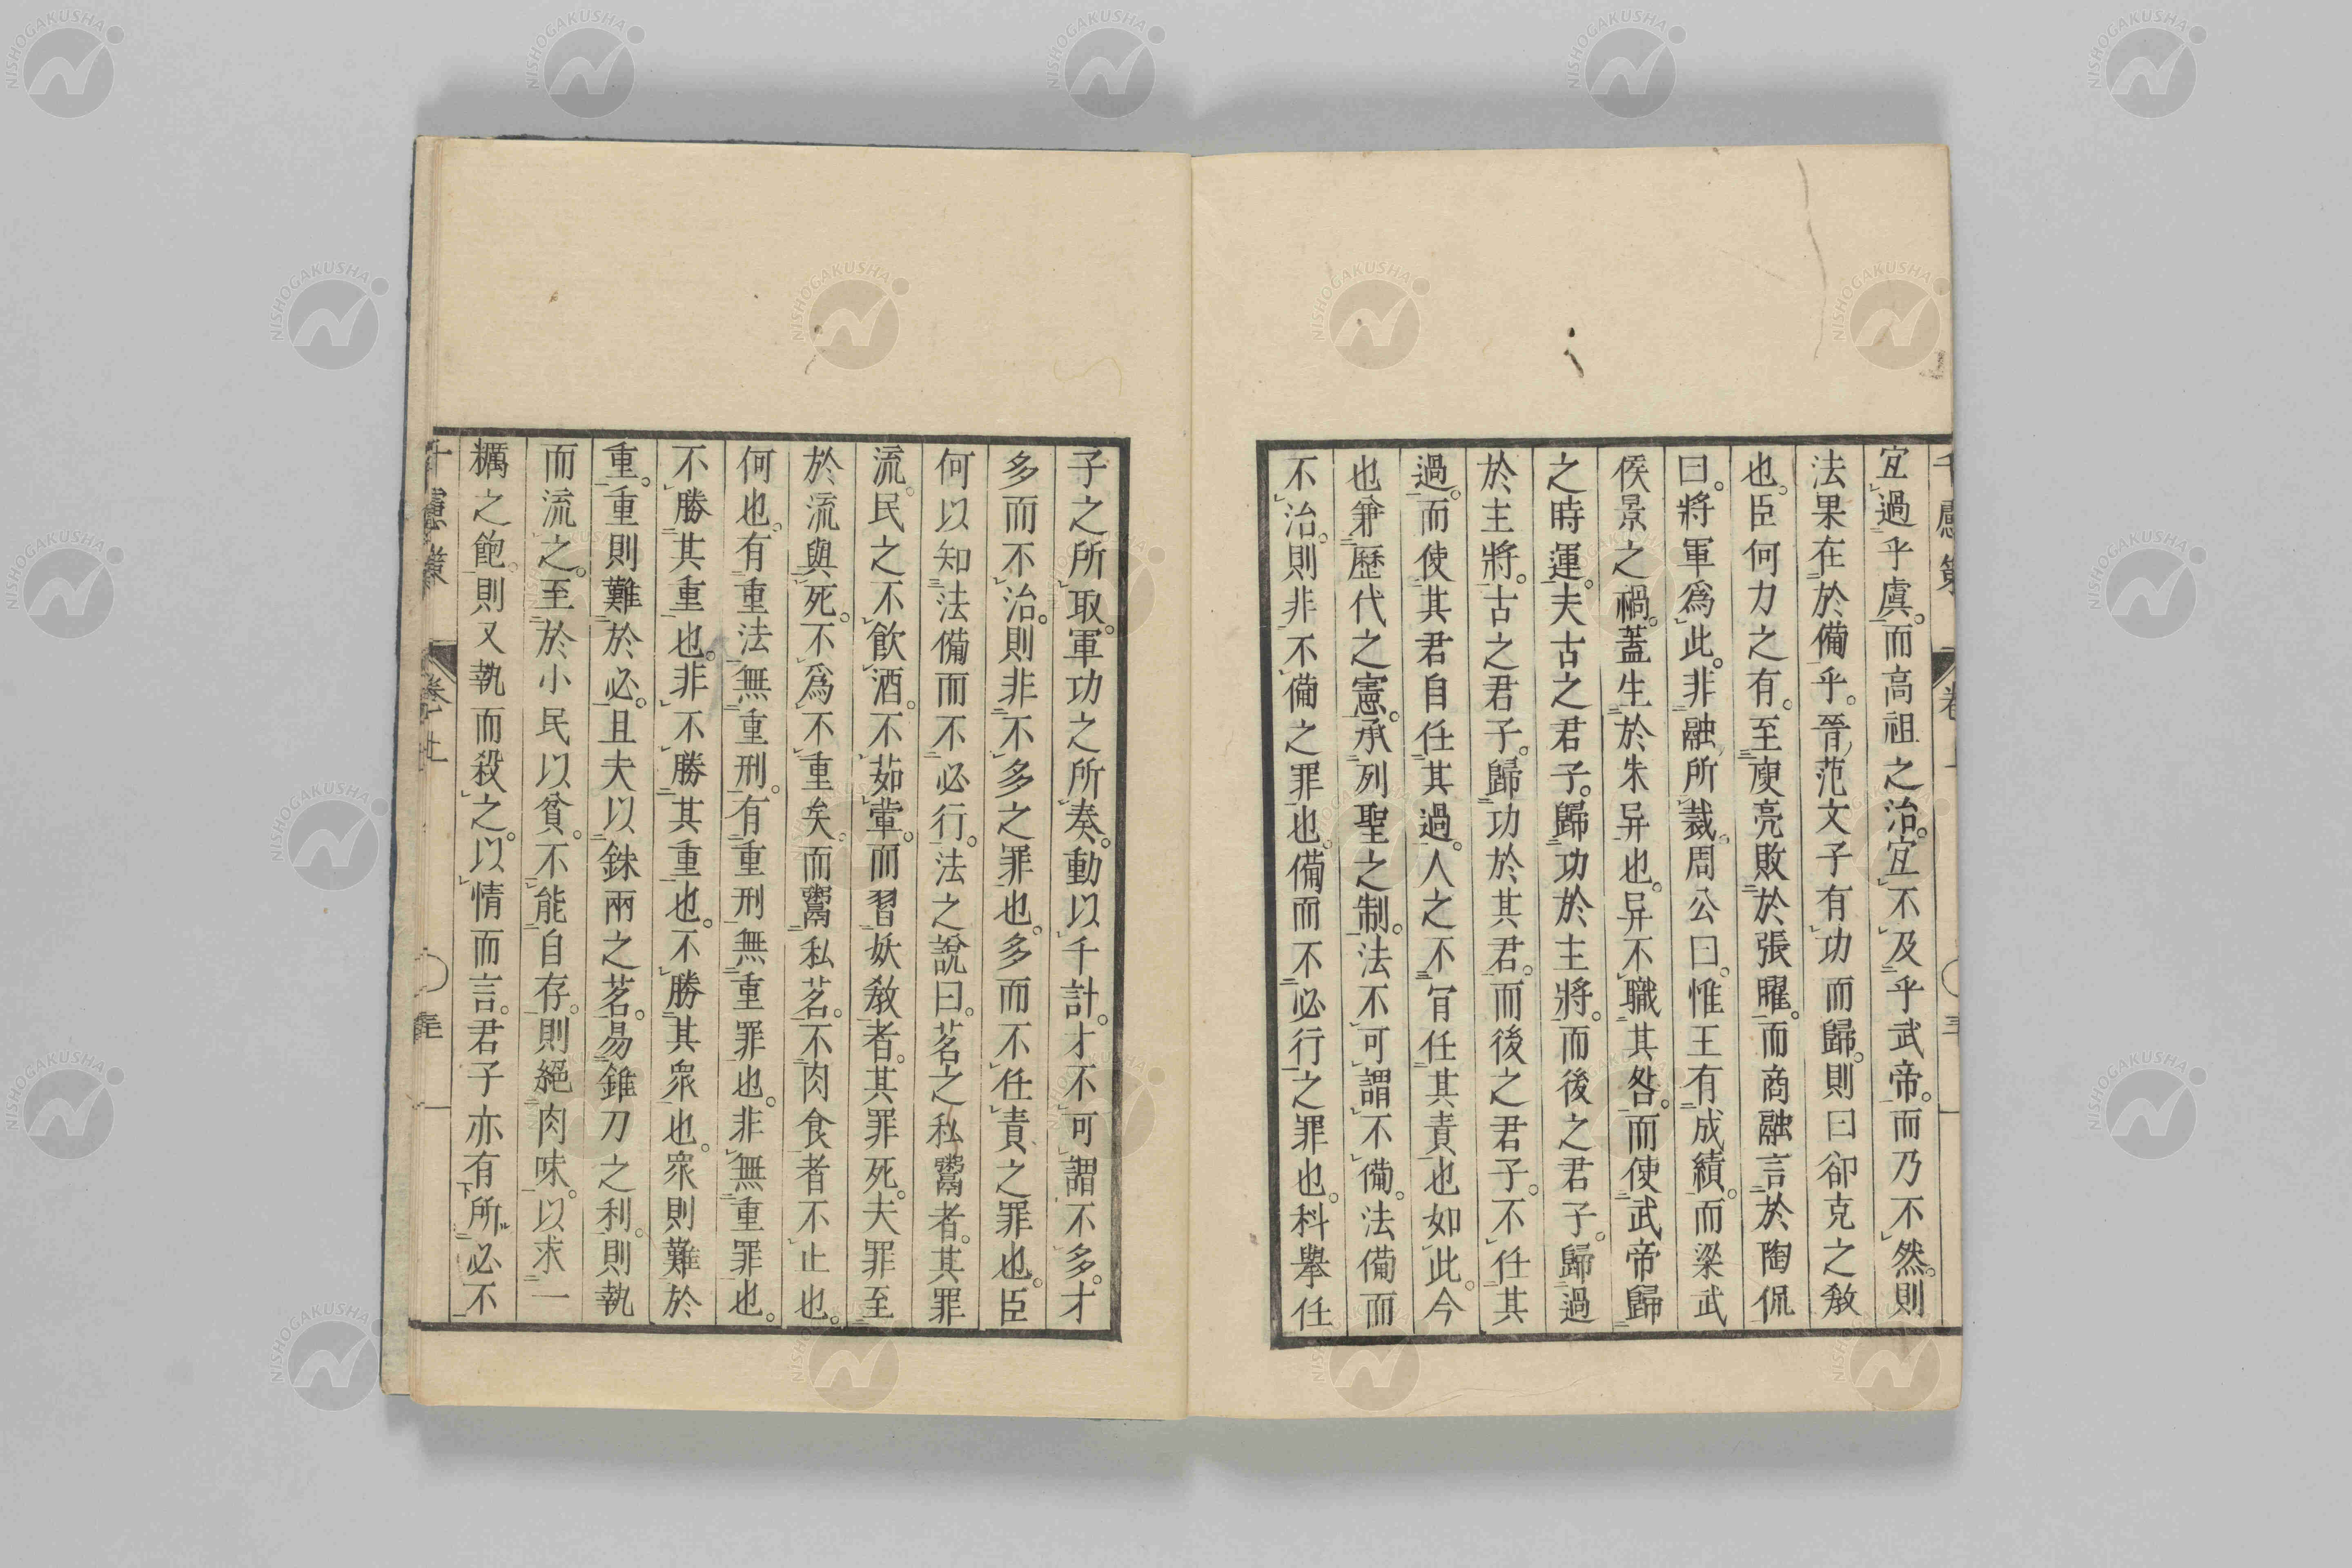 宜過乎虞。而高祖之治。宜不及乎武帝。而乃不然。則
法果在於備乎。晉范文子有功而歸。則曰郤克之敎
也。臣何力之有。至庾亮敗於張曜。而商融言於陶侃
曰。將軍爲此。非融所裁。周公曰。惟王有成績。而梁武
侯景之禍。蓋生於朱异也。异不職其咎。而使武帝歸
之時運。夫古之君子。歸功於主將。而後之君子。歸過
於主將。古之君子。歸功於其君。而後之君子。不任其
過。而使其君自任其過。人之不肯任其責也如此。今
也兼歷代之憲。承列聖之制。法不可謂不備。法備而
不治。則非不備之罪也。備而不必行之罪也。科擧任
子之所取。軍功之所奏。動以千計。才不可謂不多。才
多而不治。則非不多之罪也。多而不任責之罪也。臣
何以知法備而不必行。法之說曰。茗之私鬻者。其罪
流。民之不飮酒。不茹葷。而習妖敎者。其罪死。夫罪至
於流與死。不爲不重矣。而鬻私茗。不肉食者不止也。
何也。有重法無重刑。有重刑無重罪也。非無重罪也。
不勝其重也。非不勝其重也。不勝其衆也。衆則難於
重。重則難於必。且夫以銖兩之茗。易錐刀之利。則執
而流之。至於小民以貧。不能自存。則絕肉味。以求一
糲之飽。則又執而殺之。以情而言。君子亦有所必不
千慮策 卷十上